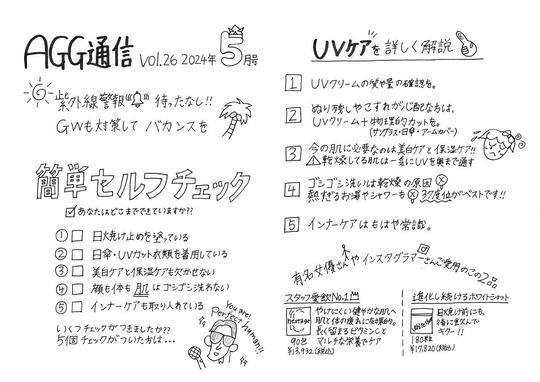 AGG通信 Vol.26 2024年 5月号
紫外線警報 待ったなし!!
GWも対策して バカンスを
簡単セルフチェック
あなたはどこまでできていますか??
① 日焼け止めを塗っている
② 日傘・UVカット衣類を着用している
③ 美白ケアと保湿ケアも欠かせない
④ 顔も体も肌はゴシゴシ洗わない
⑤ インナーケアも取り入れている
いくつチェックがつきましたか??
5個チェックがついた方は…
You are Perfect human!!
UVケアを詳しく解説
1 UVクリームの質や量の確認を。
2 ぬり残しやこすれが心配な方は、
UVクリーム+物理的カットを。
(サングラス・日傘・アームカバー)
3 今の肌に必要なのは美白ケアと保湿ケア!!
乾燥してる肌は一言にUVを奥まで通す
4 ゴシゴシ洗いは乾燥の原因
熱すぎるお湯やシャワーも 37度位がベストです!!
5 インナーケアはもはや常識。
有名女優さんやインスタグラマーさんご愛用のこの2品
スタッフ愛飲No.1
やけにくい健やかな肌へ
肌と体の疲れにも効果的。
長く留まるビタミンと
マルチな栄養でケア
90包
¥13,932(税込)
進化し続けるホワイトショット
日焼け前にも、
後に飲んで
ギクー!!
180粒
¥17,820(税込)